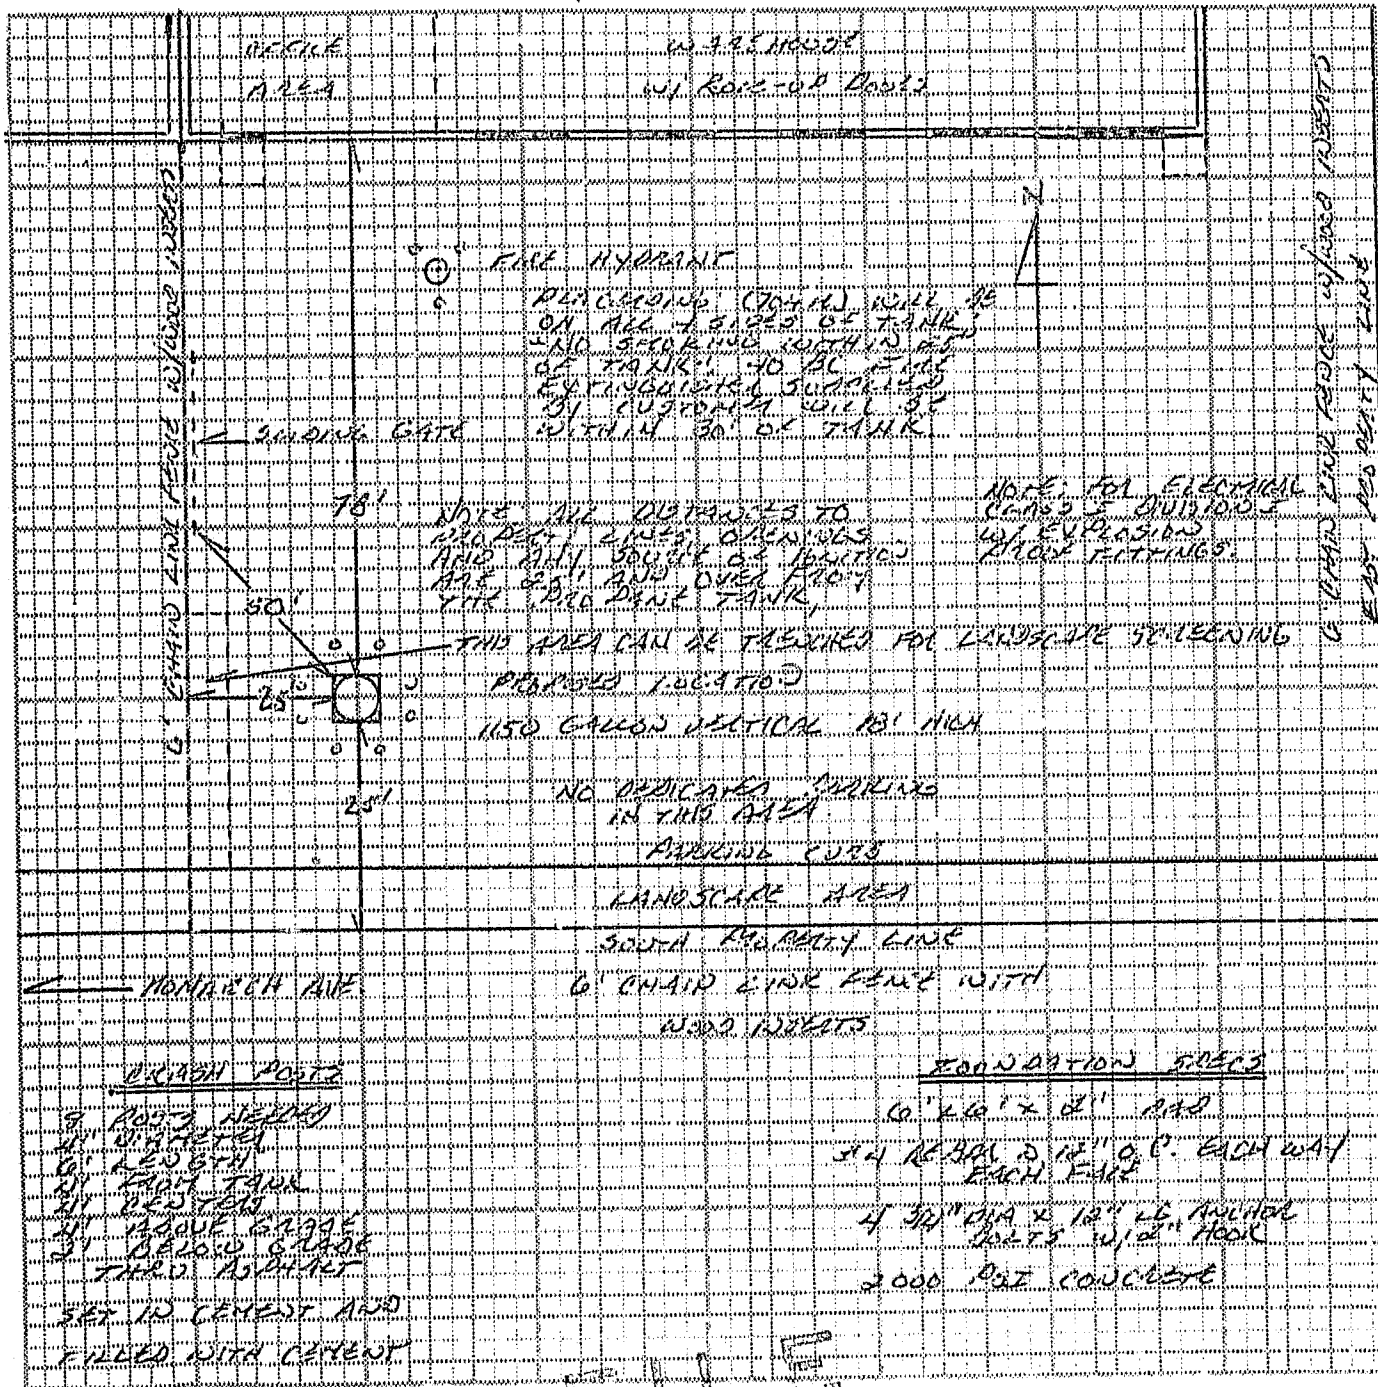 OFFICE
AREA
WAREHOUSE
W/ ROLL-UP DOORS
6' CHAIN LINK FENCE W/WOOD INSERTS
EAST PROPERTY LINE
6' CHAIN LINK FENCE W/WOOD INSERTS
N
FIRE HYDRANT
PLACARDING (704 M) WILL BE
ON ALL 4 SIDES OF TANK.
"NO SMOKING WITHIN 25'
OF TANK". 40 BC FIRE
EXTINGUISHER SUPPLIED
BY CUSTOMER WILL BE
WITHIN 30' OF TANK.
SLIDING GATE
78'
NOTE ALL DISTANCES TO
PROPERTY LINES, OPENINGS
AND ANY SOURCE OF IGNITION
ARE 25' AND OVER FROM
THE PROPANE TANK,
NOTE: FOR ELECTRICAL
CLASS I DIVISION I
W/ EXPLOSION
PROOF FITTINGS.
50'
THIS AREA CAN BE TRENCHED FOR LANDSCAPE SCREENING
PROPOSED LOCATION
25'
1150 GALLON VERTICAL 18' HIGH
NO DEDICATED PARKING
IN THIS AREA
25'
PARKING CURB
LANDSCAPE AREA
SOUTH PROPERTY LINE
MONARCH AVE
6' CHAIN LINK FENCE WITH
WOOD INSERTS
CRASH POSTS
8 POSTS NEEDED
4" DIAMETER
6' LENGTH
FROM TANK
4' CENTERS
4' ABOVE GRADE
2' BELOW GRADE
THRU ASPHALT
SET IN CEMENT AND
FILLED WITH CEMENT
FOUNDATION SPECS
6' X 6' X 2' PAD
#4 REBAR @ 12" O.C. EACH WAY
EACH FACE
4 3/4" DIA X 12" LG ANCHOR
BOLTS W/ 2" HOOK
2000 PSI CONCRETE